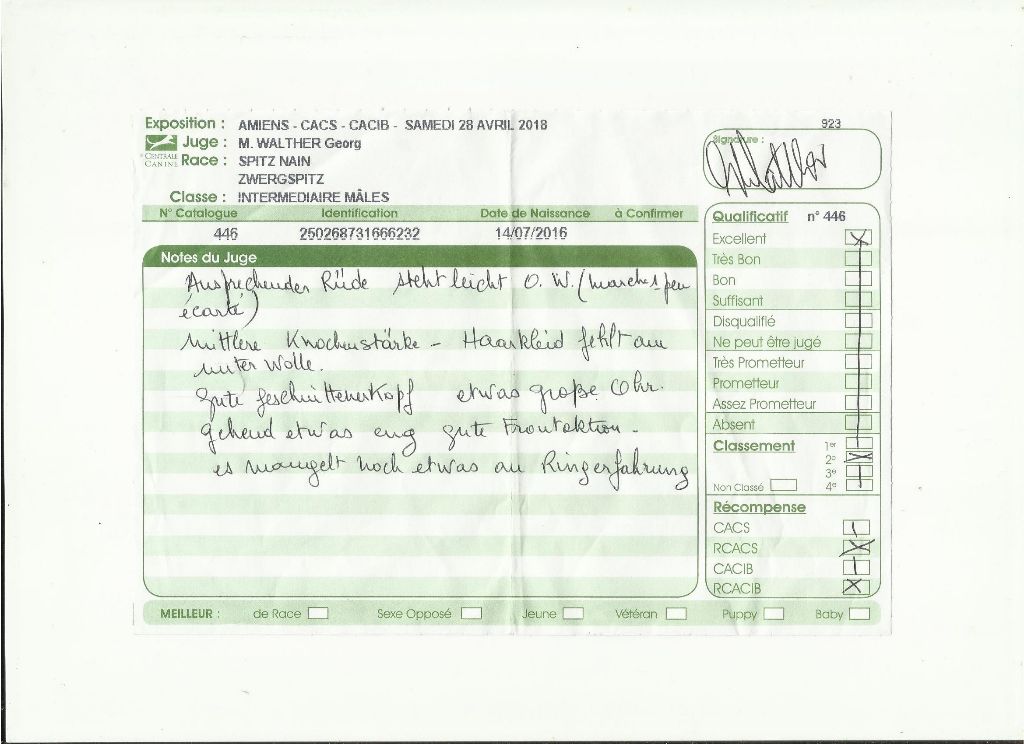 923
Exposition : AMIENS - CACS - CACIB - SAMEDI 28 AVRIL 2018
Juge : M. WALTHER Georg
CENTRALE CANINE
Race : SPITZ NAIN
ZWERGSPITZ
Classe : INTERMEDIAIRE MÂLES
Signature :
N° Catalogue Identification Date de Naissance à Confirmer
446 250268731666232 14/07/2016
Notes du Juge
Ansprechender Rüde steht leicht O. W. (marche 1 peu
écarté)
Mittlere Knochenstärke - Haarkleid fehlt am
unter Wolle.
gute geschnittener Kopf etwas große Ohr.
gehend etwas eng gute Frontaktion -
es mangelt noch etwas an Ringerfahrung
Qualificatif n° 446
Excellent
Très Bon
Bon
Suffisant
Disqualifié
Ne peut être jugé
Très Prometteur
Prometteur
Assez Prometteur
Absent
Classement 1er
2e
3e
Non Classé 4e
Récompense
CACS
RCACS
CACIB
RCACIB
MEILLEUR : de Race Sexe Opposé Jeune Vétéran Puppy Baby